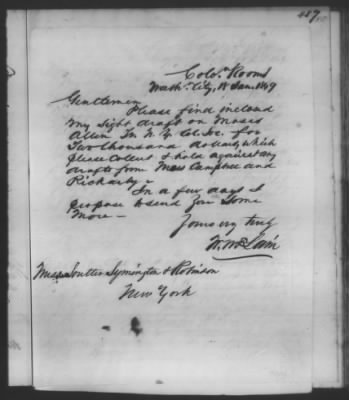 Colo. Rooms
Wash. City, 18 Jan. 1849
Gentlemen
Please find inclosed
my sight draft on Moses
Allen Tr. N. Y. Col. Soc. for
Two thousand dollars, which
please collect & hold against my
drafts from Mess Campbell and
Richards—
In a few days I
propose to send you some
more—
Yours very truly
W. McLain
Messrs Soutter Symington & Robinson
New York